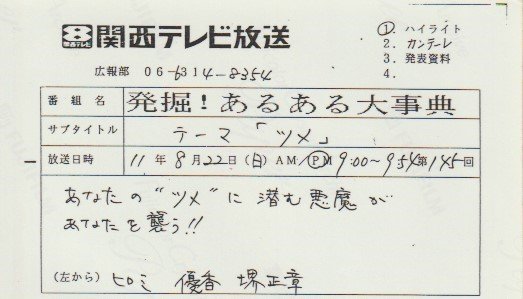 8 関西テレビ放送
関西テレビ
広報部 06-6314-8354
①. ハイライト
2. カンテーレ
3. 発表資料
4.
番組名 発掘!あるある大事典
サブタイトル テーマ「ツメ」
放送日時 11年8月22日(日)AM/PM 9:00~9:54第145回
あなたの“ツメ”に潜む悪魔が
あなたを襲う!!
(左から) ヒロミ 優香 堺正章